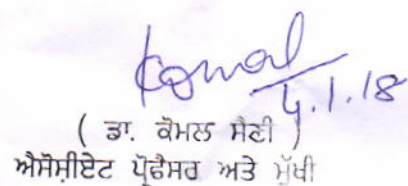 Komal
4.1.18
( ਡਾ. ਕੋਮਲ ਸੈਣੀ )
ਐਸੋਸ਼ੀਏਟ ਪ੍ਰੋਫੈਸਰ ਅਤੇ ਮੁੱਖੀ